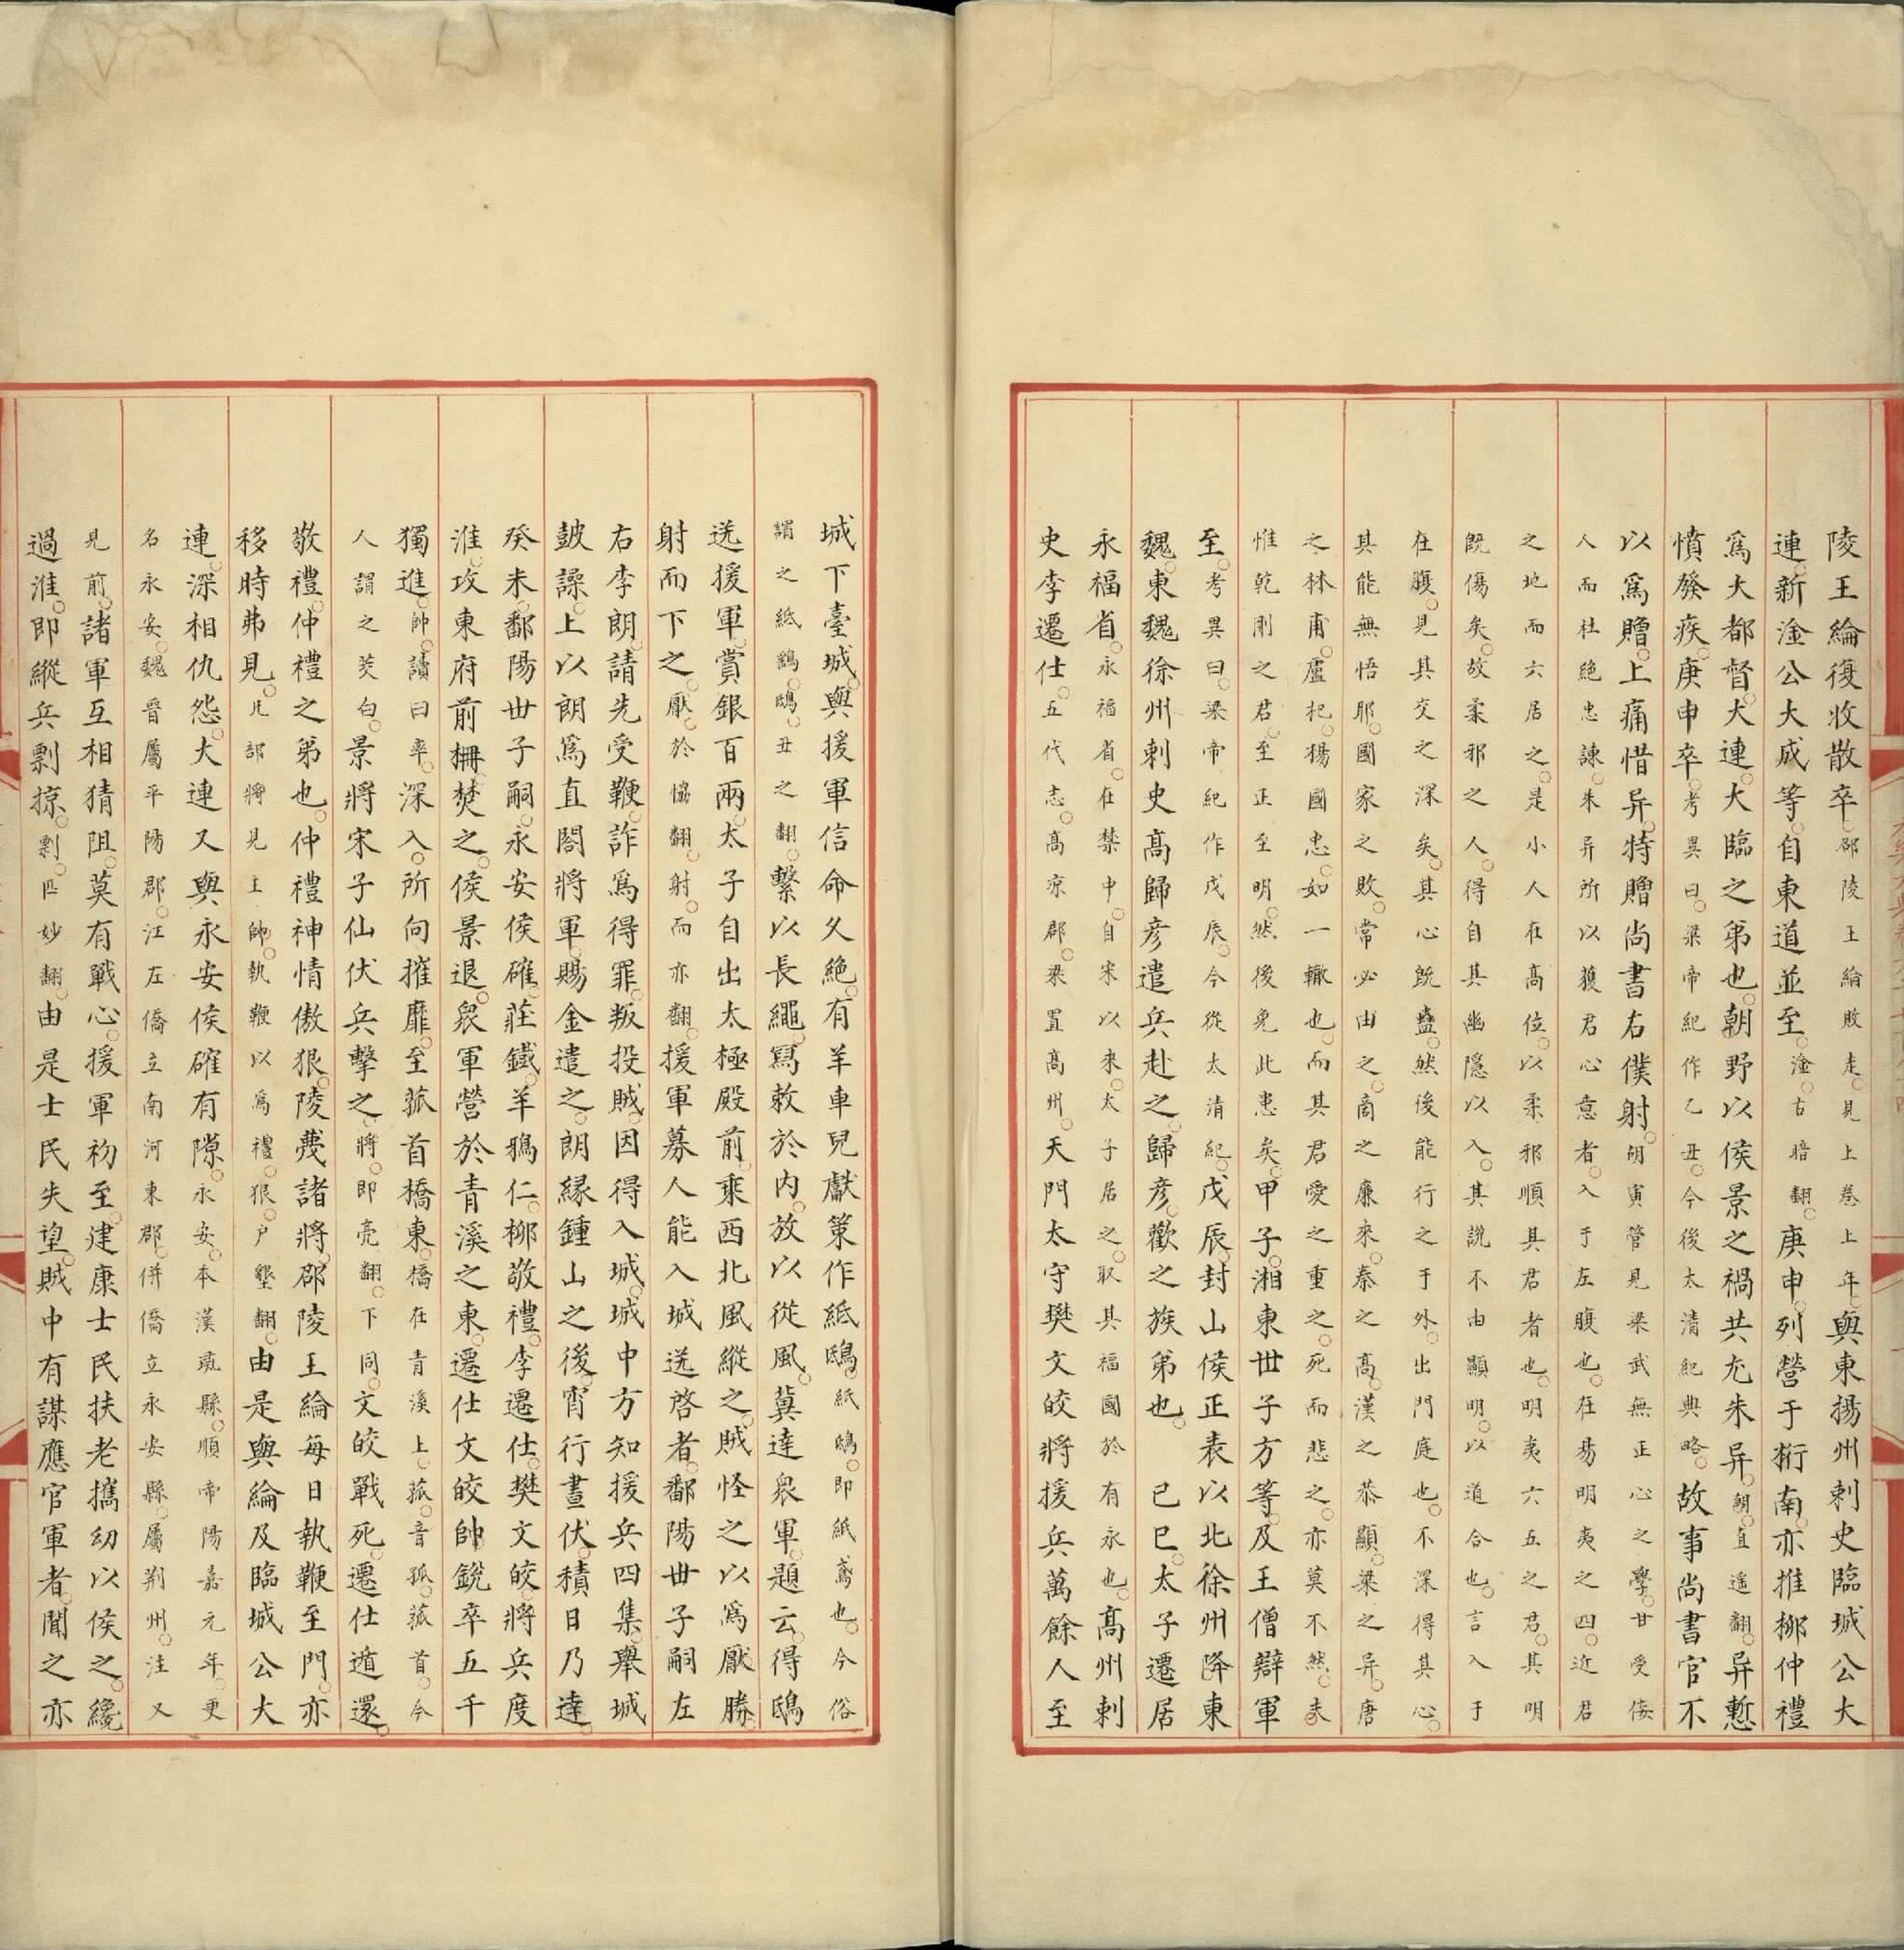 陵王綸復收散卒邵陵王綸敗走見上卷上年與東揚州刺史臨城公大
連新淦公大成等自東道並至淦古暗翻庚申列營于桁南亦推柳仲禮
爲大都督大連大臨之弟也朝野以侯景之禍共尤朱异朝直遥翻异慙
憤發疾庚申卒考異曰梁帝紀作乙丑今後太清紀典略故事尚書官不
以爲贈上痛惜异特贈尚書右僕射胡寅管見梁武無正心之學甘受佞
人而杜絶忠諫朱异所以獲君心意者入于左腹也在易明夷之四近君
之地而六居之是小人在高位以柔邪順其君者也明夷六五之君其明
既傷矣故柔邪之人得自其幽隱以入其說不由顯明以道合也言入于
在腹見其交之深矣其心既蠱然後能行之于外出門庭也不深得其心
其能無悟耶國家之敗常必由之商之廉來秦之高漢之恭顯梁之异唐
之林甫盧杞楊國忠如一轍也而其君愛之重之死而悲之亦莫不然夫
惟乾剛之君至正至明然後免此患矣甲子湘東世子方等及王僧辯軍
至考異曰梁帝紀作戊辰今從太清紀戊辰封山侯正表以北徐州降東
魏東魏徐州刺史高歸彦遣兵赴之歸彦歡之族弟也 己巳太子遷居
永福省永福省在禁中自宋以來太子居之取其福國於有永也高州刺
史李遷仕五代志高凉郡梁置高州天門太守樊文皎將援兵萬餘人至
城下臺城與援軍信命久絶有羊車兒獻策作紙鴟紙鴟即紙鳶也今俗
謂之紙鷂鴟丑之翻繫以長繩寫敕於内放以從風冀達衆軍題云得鴟
送援軍賞銀百兩太子自出太極殿前乘西北風縱之賊怪之以爲厭勝
射而下之厭於協翻射而亦翻援軍募人能入城送啓者鄱陽世子嗣左
右李朗請先受鞭詐爲得罪叛投賊因得入城城中方知援兵四集舉城
鼓譟上以朗爲直閤將軍賜金遣之朗縁鍾山之後宵行晝伏積日乃達
癸未鄱陽世子嗣永安侯確莊鐵羊鴉仁柳敬禮李遷仕樊文皎將兵度
淮攻東府前柵焚之侯景退衆軍營於青溪之東遷仕文皎帥銳卒五千
獨進帥讀曰率深入所向摧靡至菰首橋東橋在青溪上菰音孤菰首今
人謂之茭白景將宋子仙伏兵擊之將即亮翻下同文皎戰死遷仕遁還
敬禮仲禮之弟也仲禮神情傲狠陵蔑諸將邵陵王綸每日執鞭至門亦
移時弗見凡部將見主帥執鞭以爲禮狠户墾翻由是與綸及臨城公大
連深相仇怨大連又與永安侯確有隙永安本漢彘縣順帝陽嘉元年更
名永安魏晉屬平陽郡江左僑立南河東郡併僑立永安縣屬荆州注又
見前諸軍互相猜阻莫有戰心援軍初至建康士民扶老攜幼以候之纔
過淮即縱兵剽掠剽匹妙翻由是士民失望賊中有謀應官軍者聞之亦